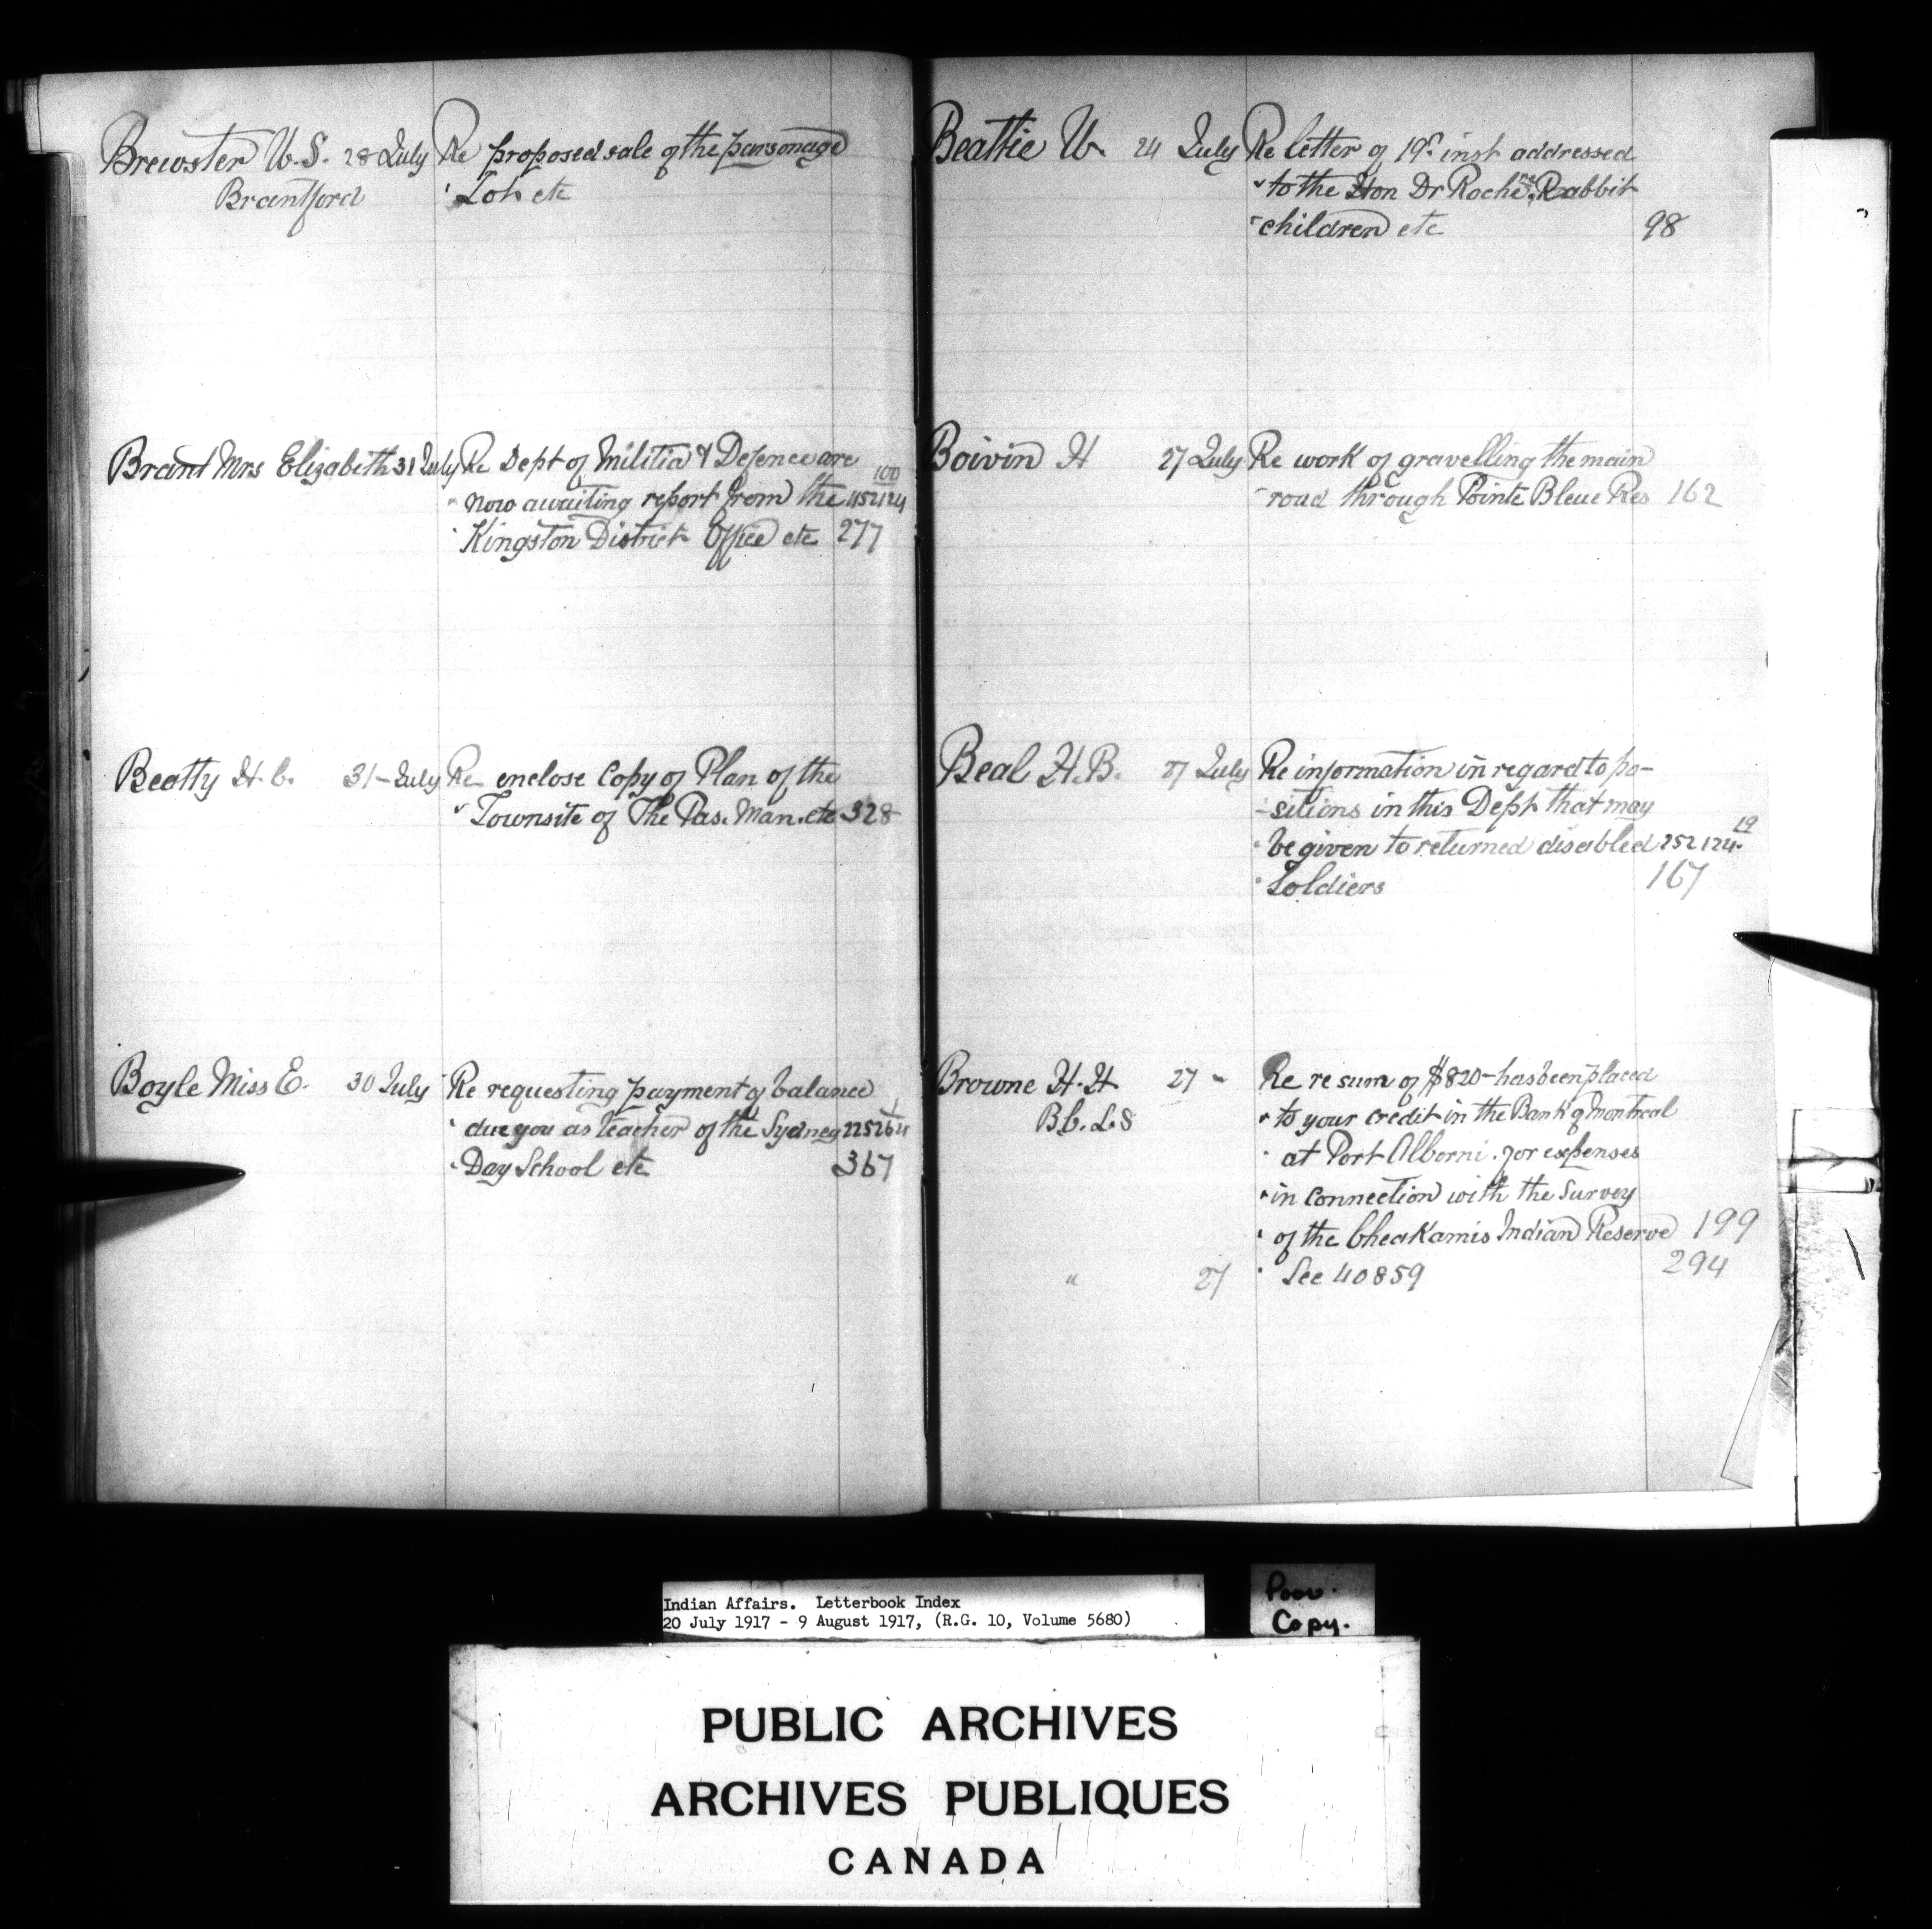 Brewster W. S. 28 July Re proposed sale of the parsonage
Brantford " Lot etc
Brant Mrs Elizabeth 31 July Re Dept of Militia & Defence are 100
" now awaiting report from the 452124
" Kingston District Office etc 277
Beatty H. C. 31 - July Re enclose Copy of Plan of the
" Townsite of The Pas. Man. etc 328
Boyle Miss E. 30 July Re requesting payment of balance 1
" due you as teacher of the Sydney 225264
" Day School etc 367
Beattie W. 24 July Re letter of 19th inst addressed
" to the Hon Dr Roche re Rabbit
" children etc 98
Boivin H 27 July Re work of gravelling the main
" road through Pointe Bleue Res 162
Beal H. B. 27 July Re information in regard to po-
- sitions in this Dept that may 19
" be given to returned disabled 252124
" Soldiers 167
Browne H. H. 27 " Re re sum of $820- has been placed
B.C. L.S " to your credit in the Bank of Montreal
" at Port Alberni. for expenses
" in connection with the Survey
" of the Cheakamis Indian Reserve 199
" 27 " See 40859 294
Indian Affairs. Letterbook Index
20 July 1917 - 9 August 1917, (R.G. 10, Volume 5680)
Poor.
Copy.
PUBLIC ARCHIVES
ARCHIVES PUBLIQUES
CANADA